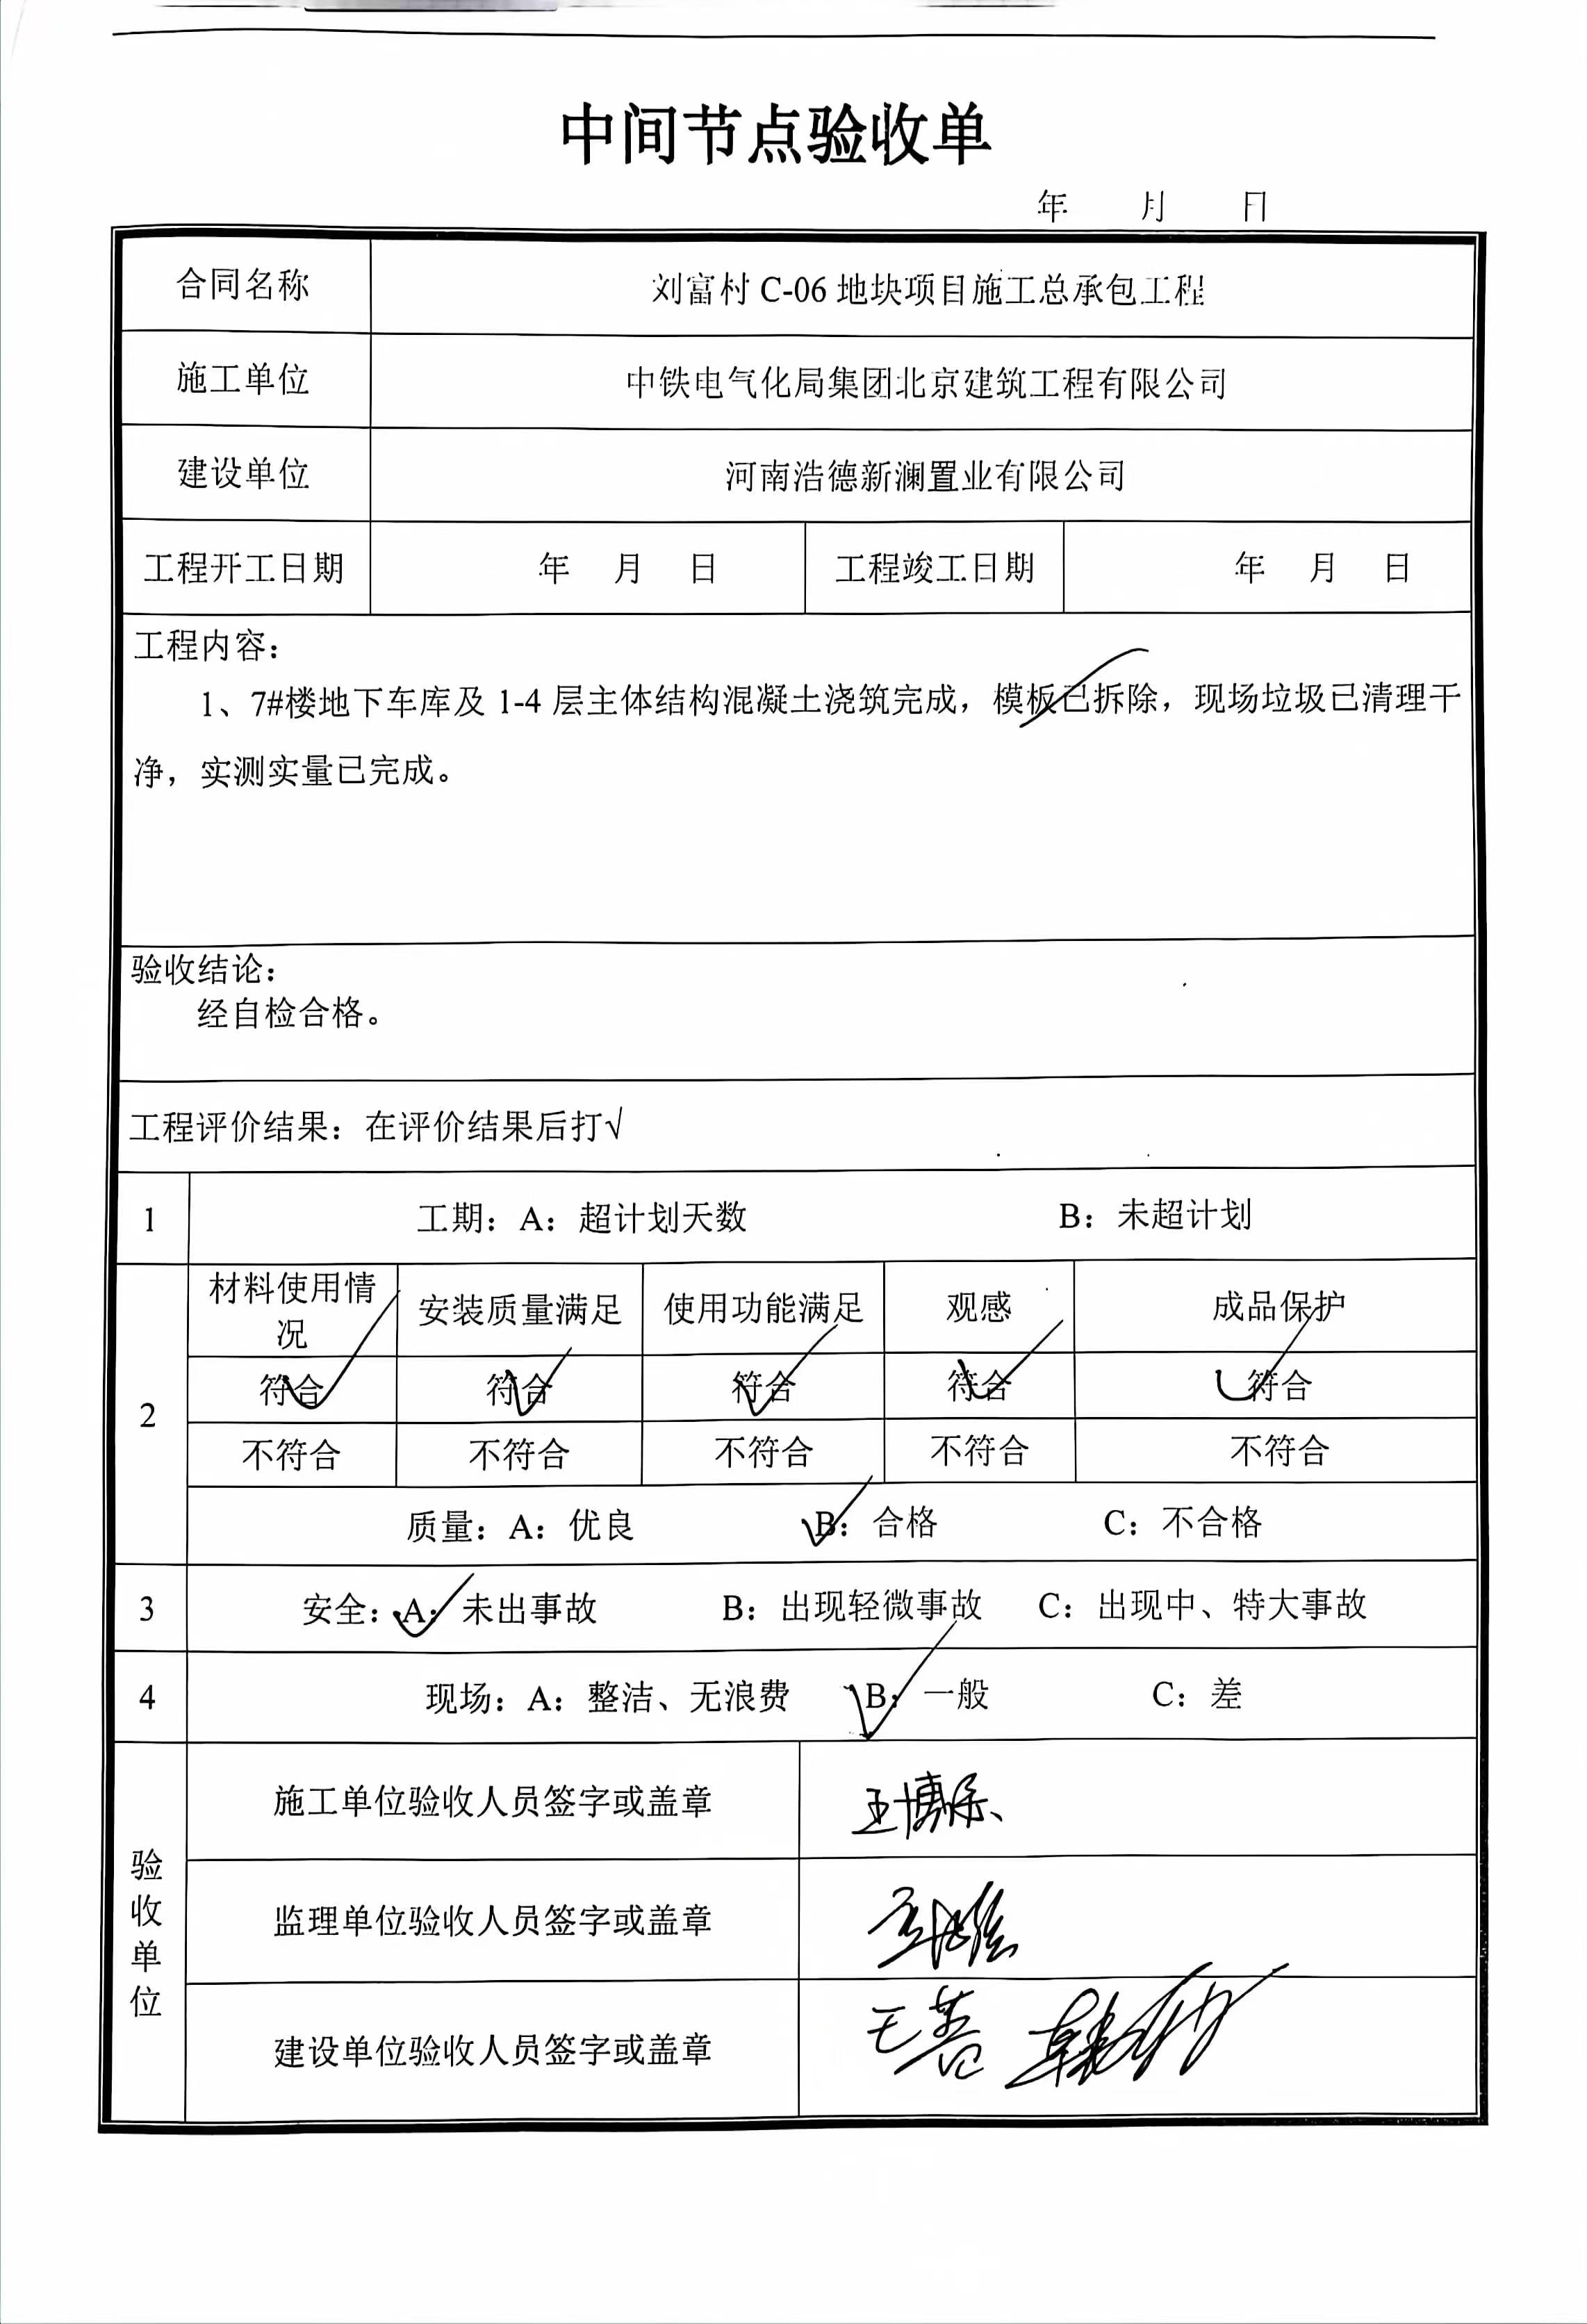 中间节点验收单
年 月 日
合同名称 刘富村 C-06 地块项目施工总承包工程
施工单位 中铁电气化局集团北京建筑工程有限公司
建设单位 河南浩德新澜置业有限公司
工程开工日期 年 月 日 工程竣工日期 年 月 日
工程内容：
1、7#楼地下车库及 1-4 层主体结构混凝土浇筑完成，模板已拆除，现场垃圾已清理干
净，实测实量已完成。
验收结论：
经自检合格。
工程评价结果：在评价结果后打√
1 工期：A：超计划天数 B：未超计划
2
材料使用情
况
安装质量满足 使用功能满足 观感 成品保护
符合 符合 符合 符合 符合
不符合 不符合 不符合 不符合 不符合
质量：A：优良 B：合格 C：不合格
3 安全：A：未出事故 B：出现轻微事故 C：出现中、特大事故
4 现场：A：整洁、无浪费 B：一般 C：差
验收单位
施工单位验收人员签字或盖章
监理单位验收人员签字或盖章
建设单位验收人员签字或盖章